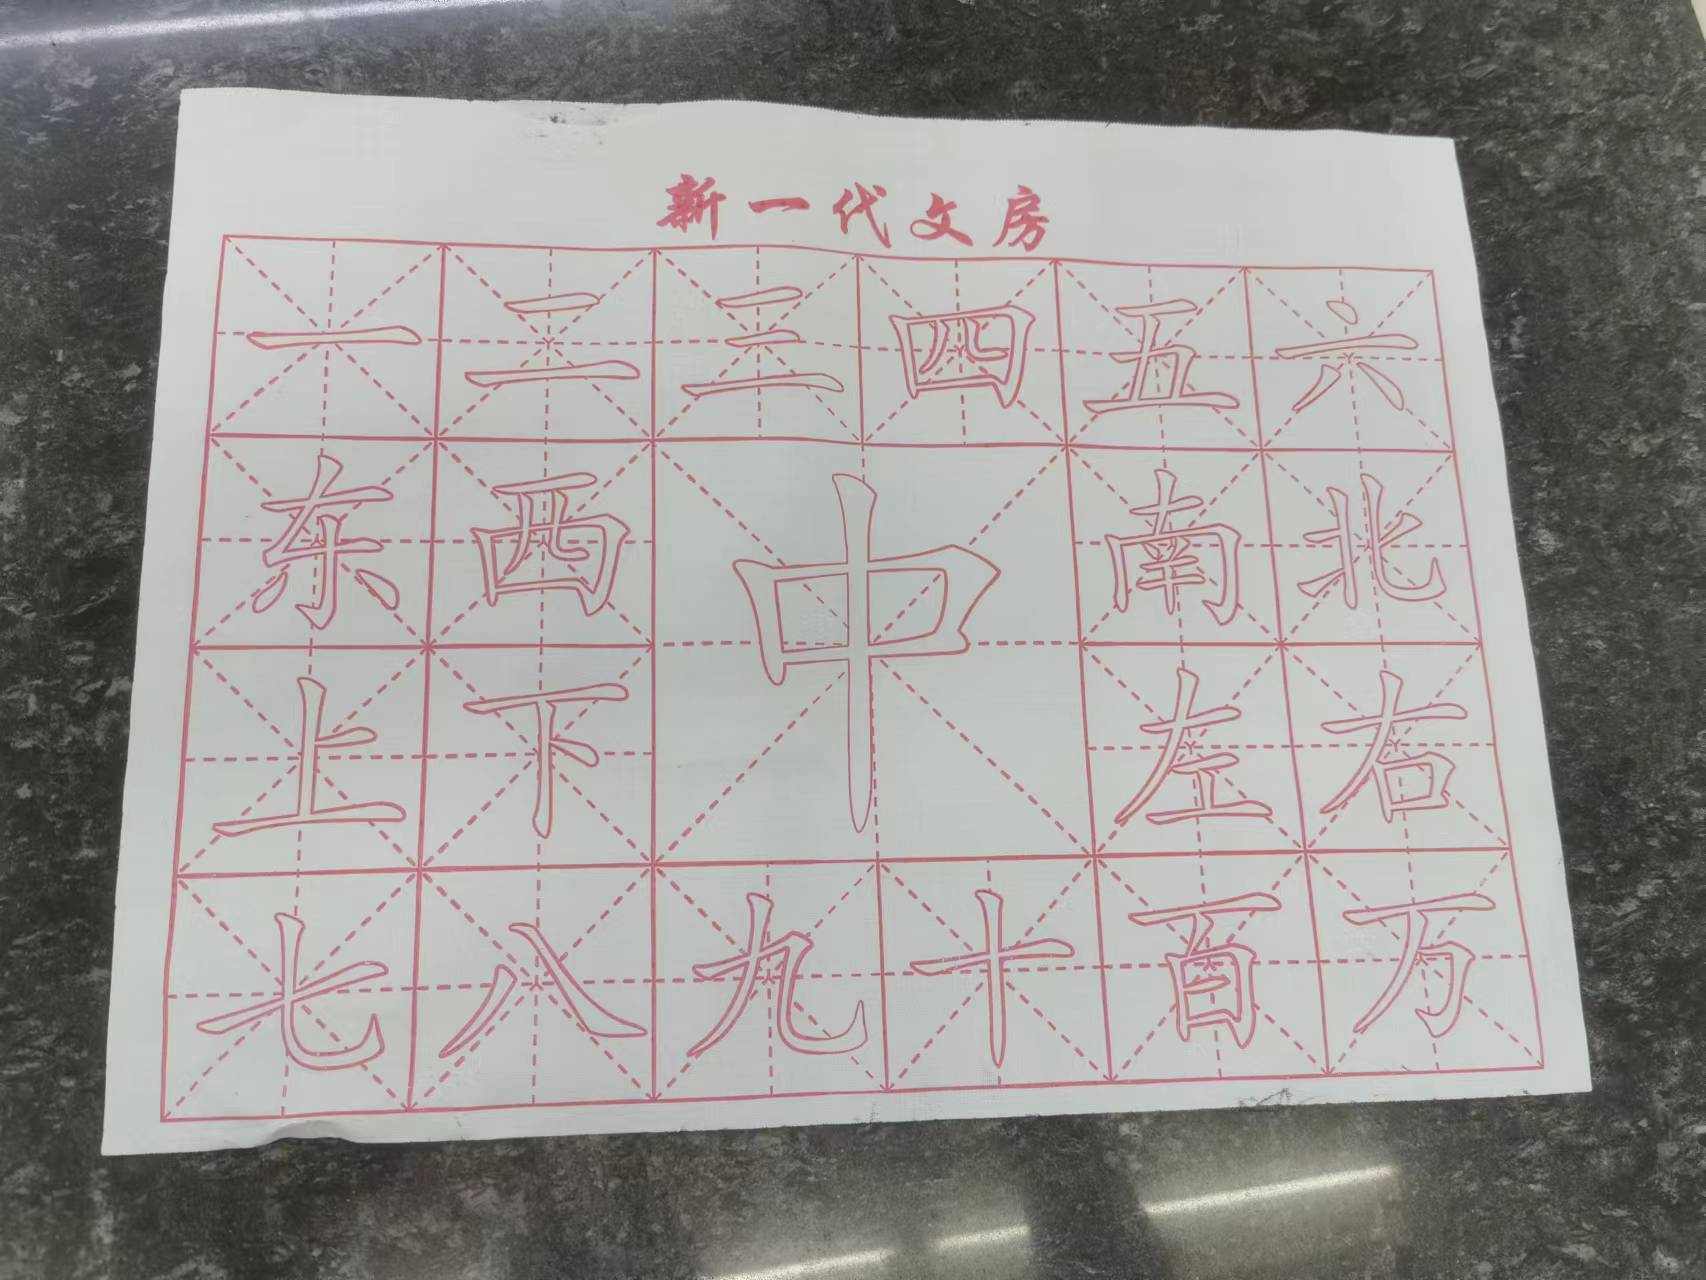 新一代文房
一二三四五六
东西中南北
上下左右
七八九十百万